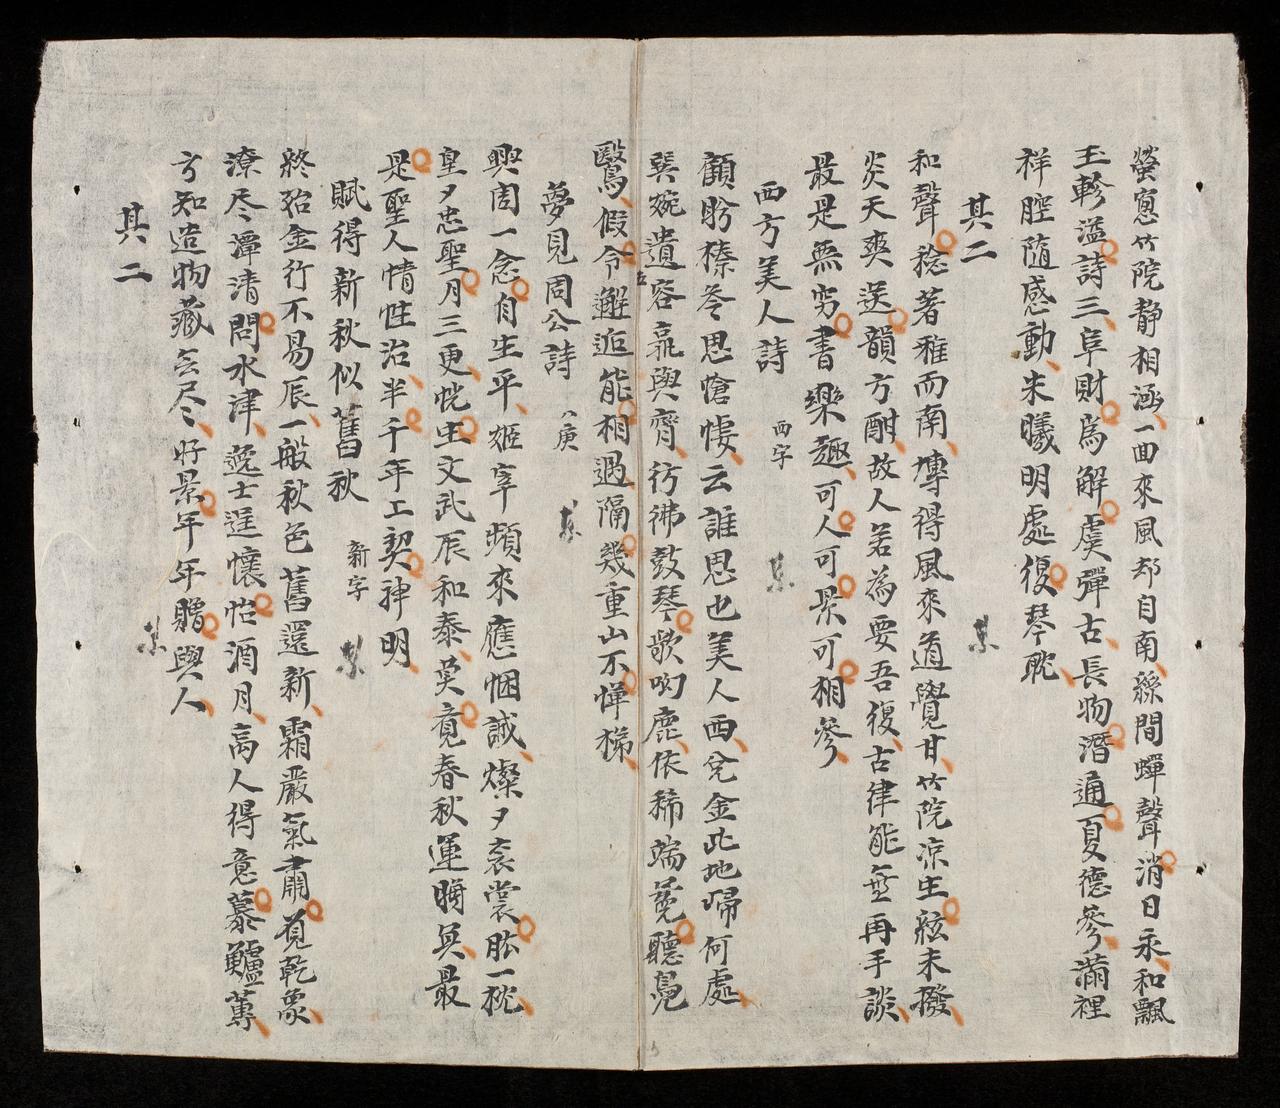 螢窓竹院静相涵一面來風却自南絲間蟬聲消日永和飄
玉軫溢詩三阜財爲解虞彈古長物潛通夏德參滿裡
祥腔隨感動朱曦明處復琴耽
其二
和聲稔著雅而南博得風來道覺甘竹院凉生絃未撥
炎天爽送韻方酣故人若為要吾復古律能無再手談
最是無穷書樂趣可人可景可相參
西方美人詩 西字
顧盻榛苓思愴悽云誰思也美人西兌金此地歸何處
巽婉遺容鼐與齊彷彿鼓琴歌呦鹿依稀端冕聽鳧
鷖假令邂逅能相遇隔幾重山不憚梯
夢見周公詩 八庚
興周一念自生平姬宰頻來應悃誠燦夕衮裳貽一枕
皇夕忠聖月三更恍生文武辰和泰莫竟春秋運晭冥最
是聖人情性治半千年工契神明
賦得新秋似舊秋 新字
終殆金行不易辰一般秋色舊還新霜嚴氣肅覓乾象
潦尽潭清問水津逸士逞懷怡酒月高人得意慕鱸蓴
方知造物藏無尽好景年年贈與人
其二